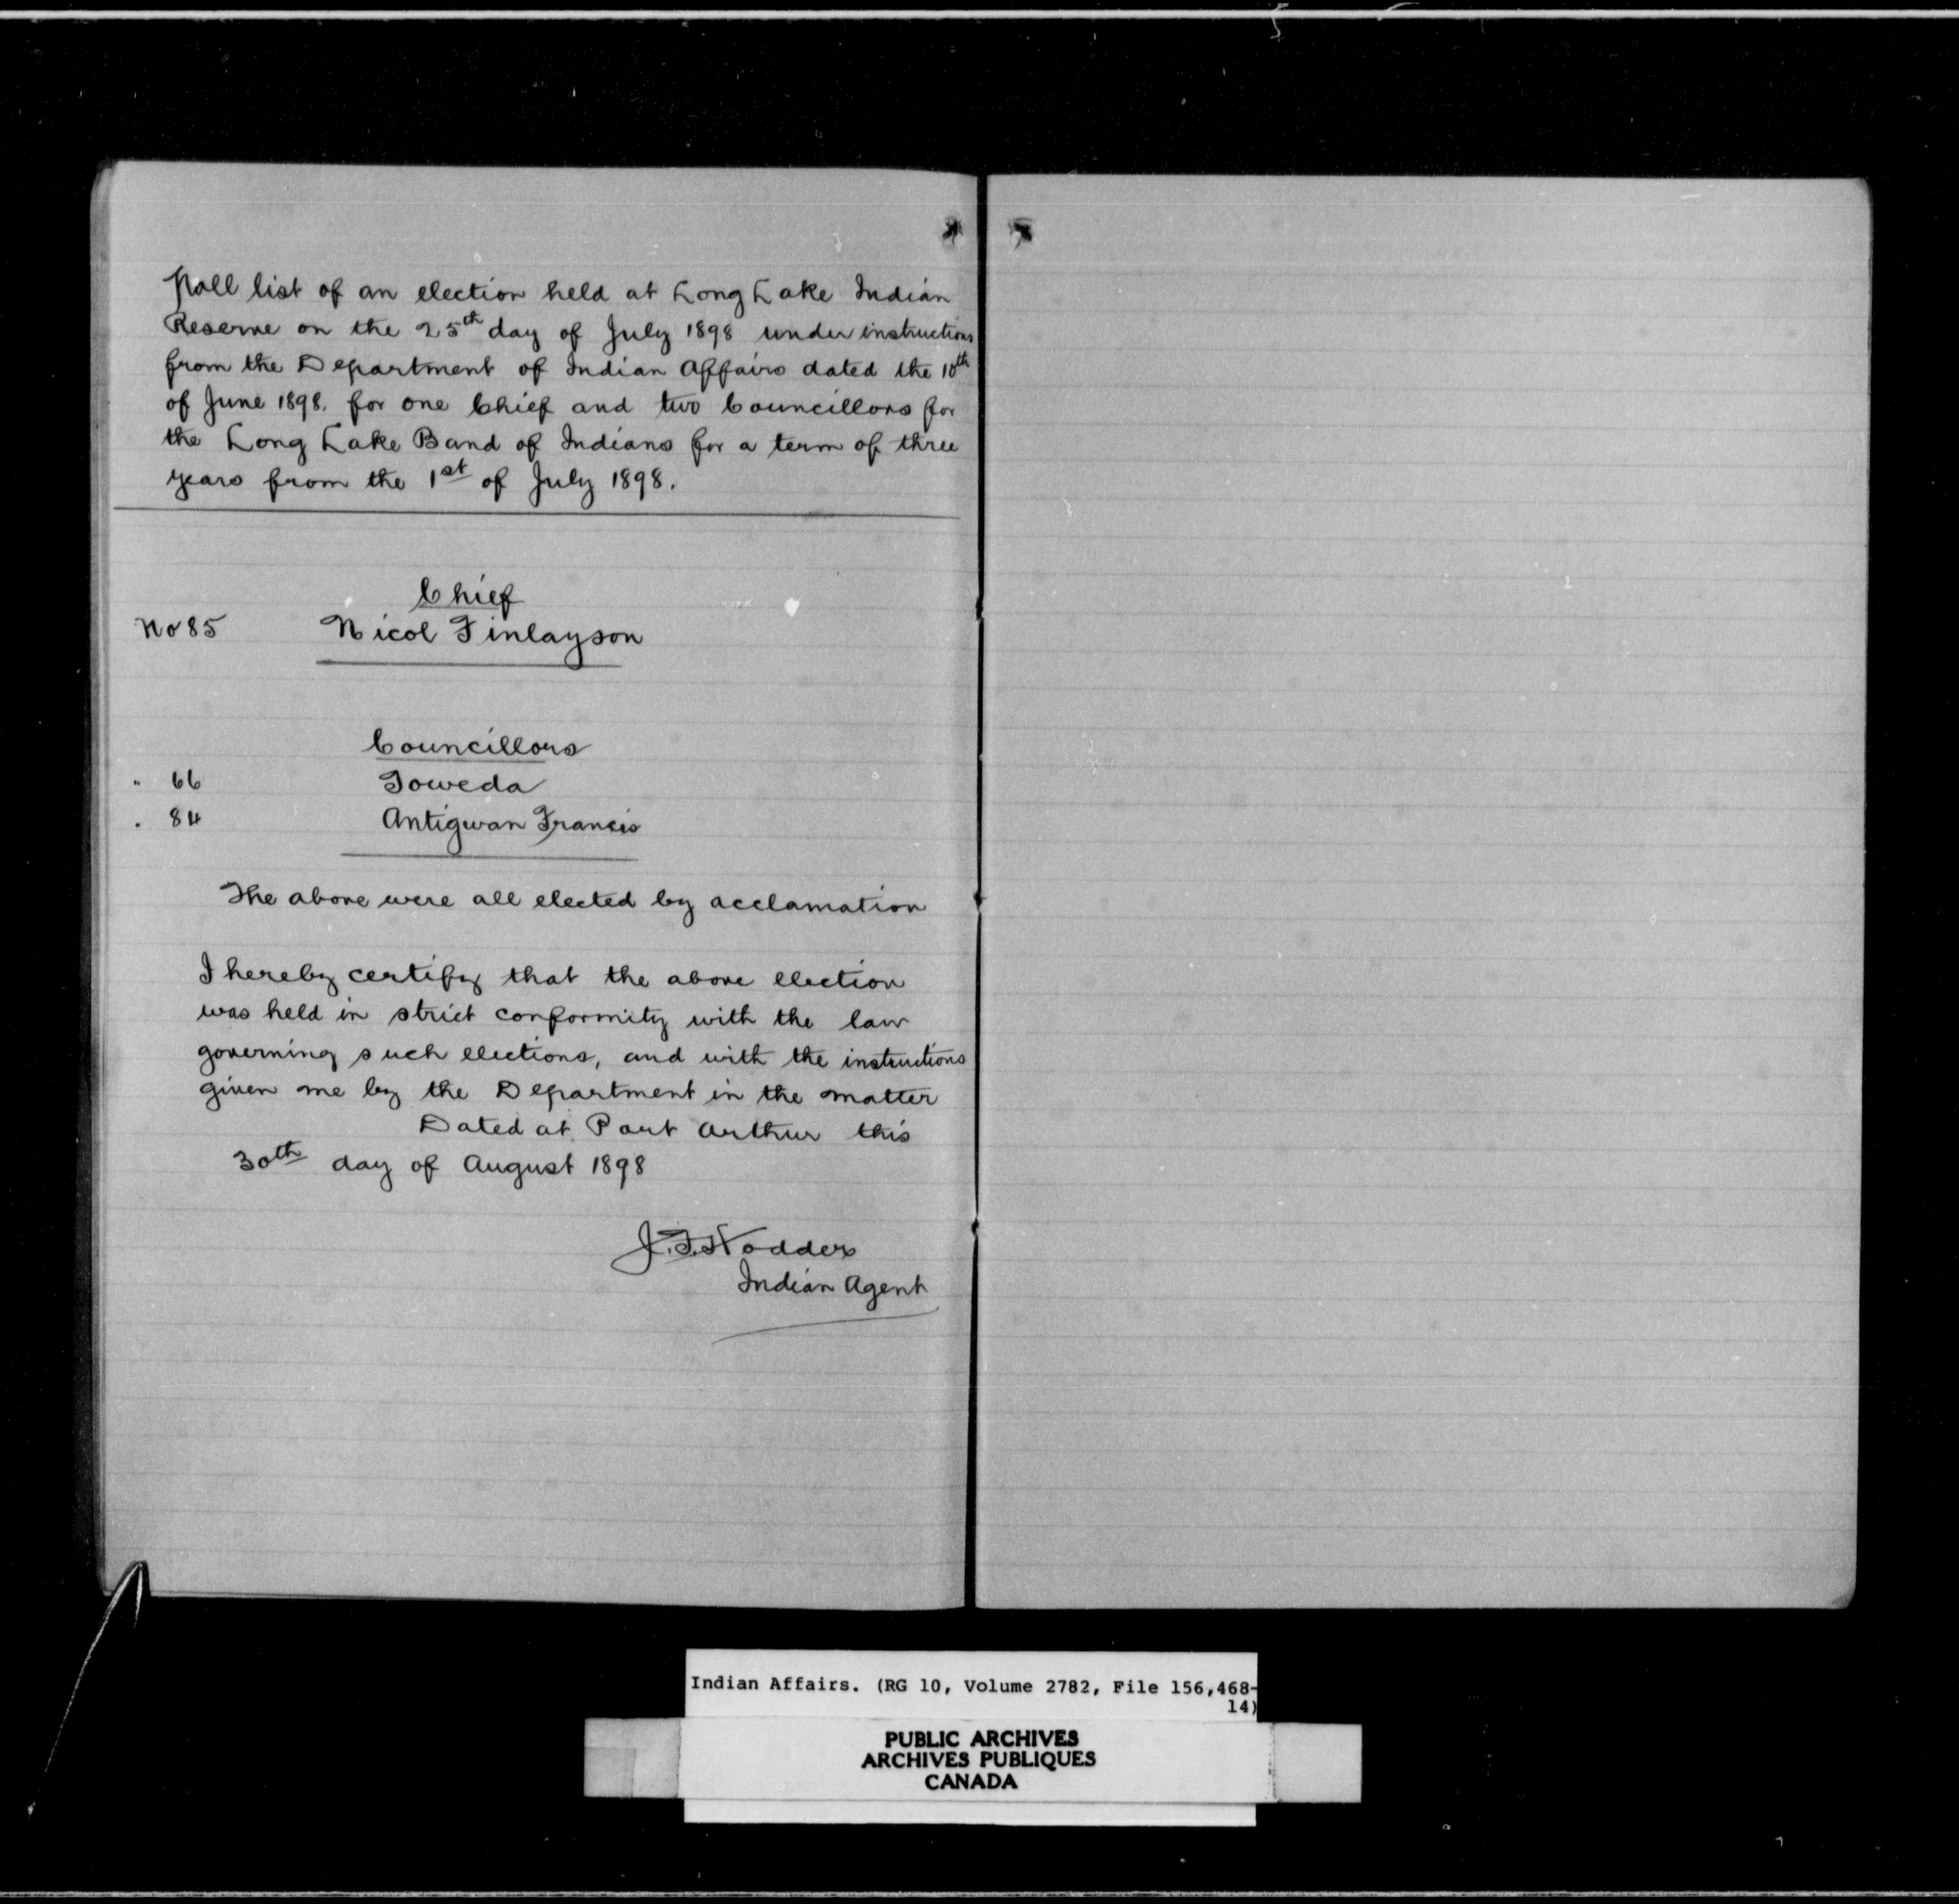 Poll list of an election held at Long Lake Indian
Reserve on the 25th day of July 1898 under instructions
from the Department of Indian Affairs dated the 10th
of June 1898. for one Chief and two Councillors for
the Long Lake Band of Indians for a term of three
years from the 1st of July 1898.
Chief
No 85 Nicol Finlayson
Councillors
" 66 Toweda
" 84 Antigwan Francis
The above were all elected by acclamation
I hereby certify that the above election
was held in strict conformity with the law
governing such elections, and with the instructions
given me by the Department in the matter
Dated at Port Arthur this
30th day of August 1898
J. F. Hodder
Indian Agent
Indian Affairs. (RG 10, Volume 2782, File 156,468-
14)
PUBLIC ARCHIVES
ARCHIVES PUBLIQUES
CANADA